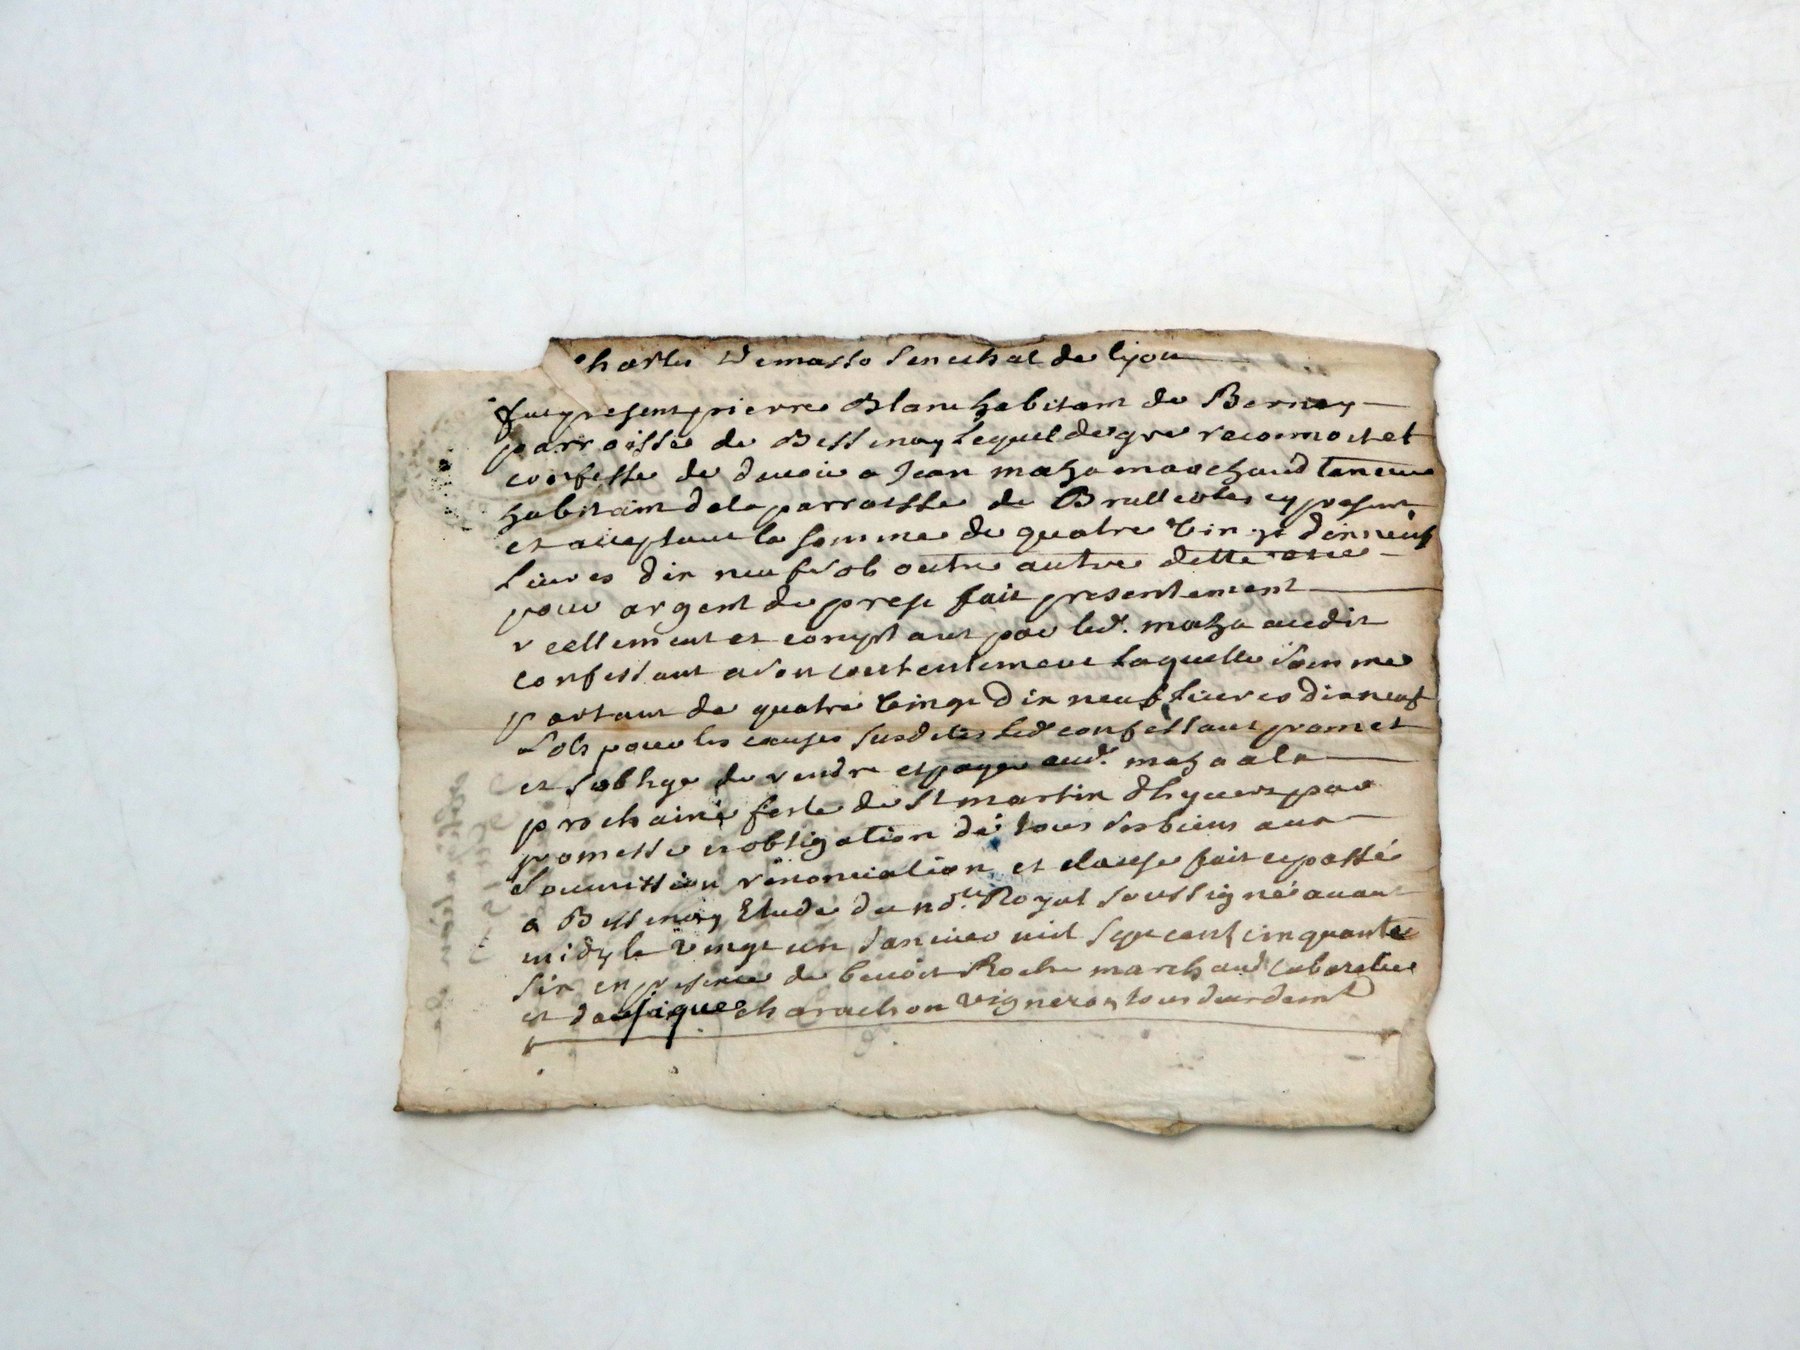 Charles Demasso Senechal de lyon
fut present pierre Blanc habitant de Bernay
parroisse de Bessenay Lequel de gre reconnoit et
confesse de devoir a Jean maza marchand tanneur
habitant de la parroisse de Brulleoles cy present
et acceptant la somme de quatre vingt dixneuf
Livres dix neuf sols outre autre dette
pour argent de prest fait presentement
reellement et comptant par led. maza audit
confessant a son contentement Laquelle somme
partant de quatre vingt dix neuf Livres dixneuf
sols pour les causes susdites Led confessant promet
et s'oblige de rendre et payer aud. maza a la
prochaine feste de St martin dhyvert par
promesse et obligation de tous ses biens aux
soumission renonciation et clause fait et passé
a Bessenay Etude du nore. Royal soussigné avant
midy le vingt un Janvier mil sept cent cinquante
six en presence de benoit Roche marchand Cabaretier
et charachon vigneron tous deux dem